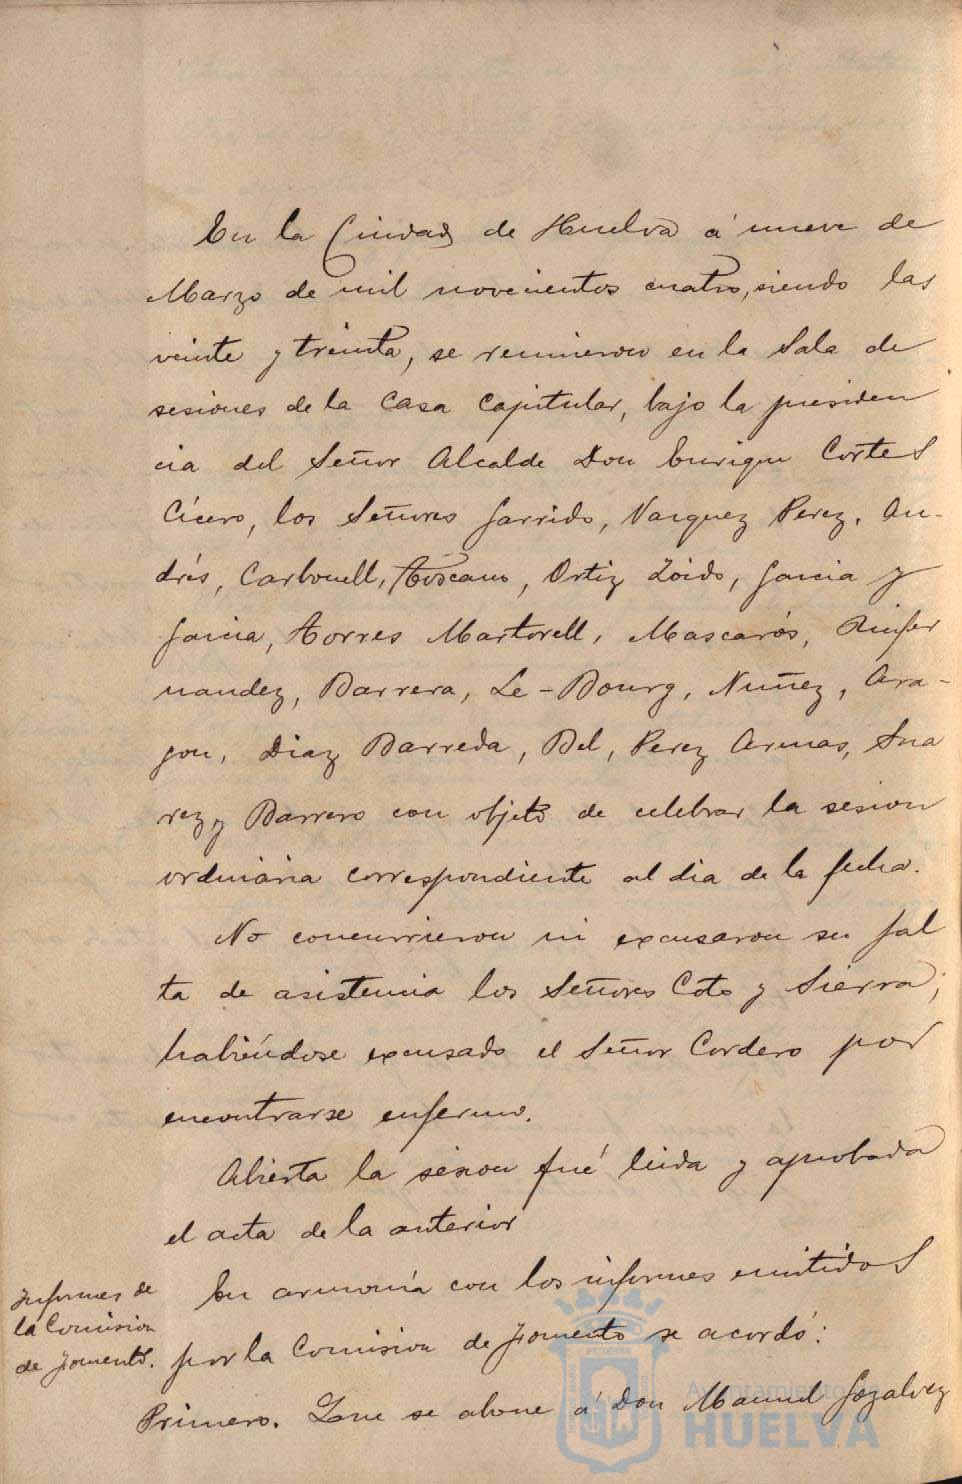 En la Ciudad de Huelva á nueve de
Marzo de mil novecientos cuatro, siendo las
veinte y treinta, se reunieron en la Sala de
sesiones de la Casa Capitular, bajo la presiden
cia del Señor Alcalde Don Enrique Cortés
Cícero, los Señores Garrido, Vazquez Perez, An-
drés, Carbonell, Toscano, Ortiz Zoido, Garcia y
Garcia, Torres Martorell, Mascarós, Quifer
nandez, Barrera, Le-Bourg, Nuñez, Ara-
gon, Diaz Barreda, Bel, Perez Armas, Sua
rez y Barrero con objeto de celebrar la sesion
ordinaria correspondiente al dia de la fecha.
No concurrieron ni excusaron su fal
ta de asistencia los Señores Coto y Sierra;
habiéndose excusado el Señor Cordero por
encontrarse enfermo.
Abierta la sesion fué leida y aprobada
el acta de la anterior
Informes de
la Comision
de Fomento.
En armonía con los informes emitidos
por la Comision de Fomento se acordó:
Primero. Que se abone á Don Manuel Gozalvez
Ayuntamiento de
HUELVA